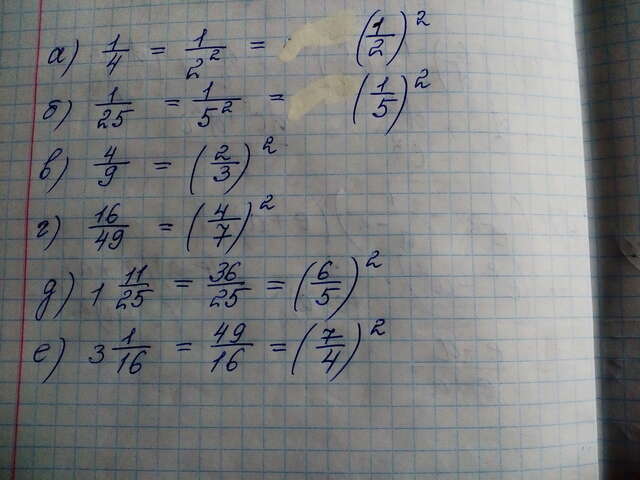 а) 1/4 = 1/2² = (1/2)²
б) 1/25 = 1/5² = (1/5)²
в) 4/9 = (2/3)²
г) 16/49 = (4/7)²
д) 1 11/25 = 36/25 = (6/5)²
е) 3 1/16 = 49/16 = (7/4)²